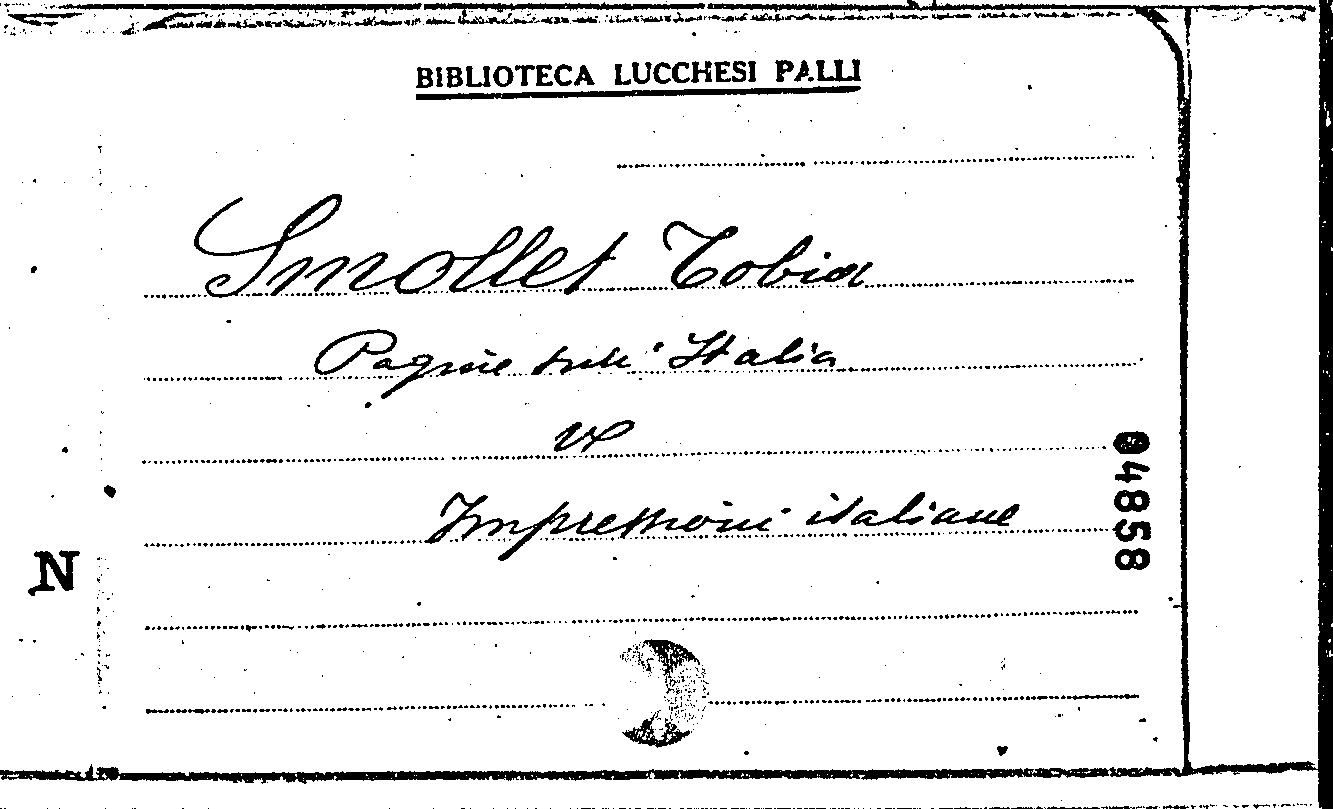 BIBLIOTECA LUCCHESI PALLI
Smollet Tobia
Pagine sull'Italia
V
Impressioni italiane
04858
N